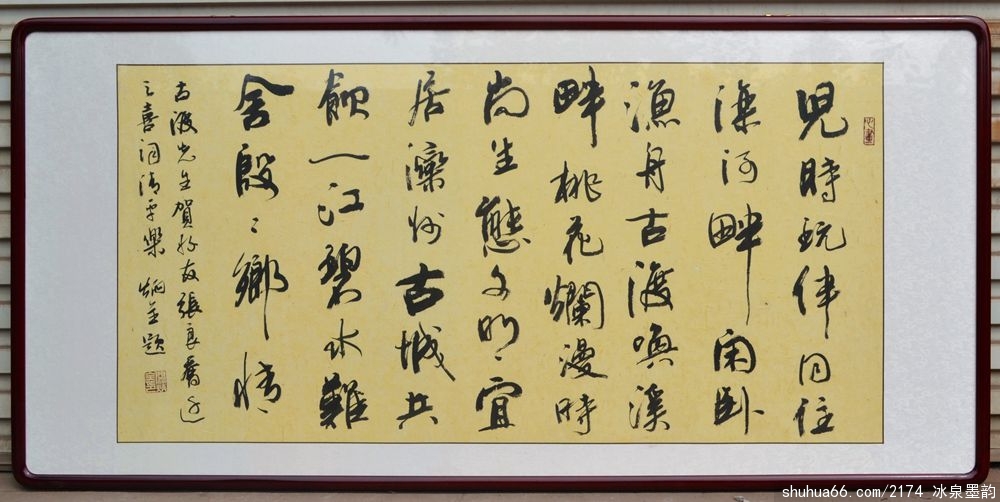 兒時玩伴同住
滦河畔闲卧
漁舟古渡喚溪
畔桃花爛漫時
尚生態文明〻宜
居灤州古城共
飲一江碧水難
舍殷〻鄉情
古渡先生賀好友張良喬迁
之喜詞清平樂 炳金題
心畫
shuhua66.com/2174 冰泉墨韵